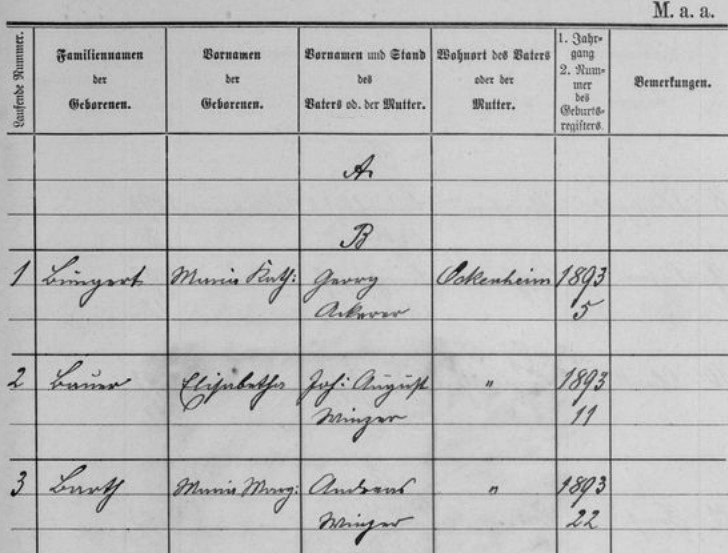 M. a. a.
Laufende Nummer.
Familiennamen
der
Geborenen.
Vornamen
der
Geborenen.
Vornamen und Stand
des
Vaters od. der Mutter.
Wohnort des Vaters
oder der
Mutter.
1. Jahr-
gang
2. Num-
mer
des
Geburts-
registers.
Bemerkungen.
A.
B
1 Bungert Maria Kath: Georg Ockenheim 1893
Ackerer 5
2 Bauer Elisabetha Joh: August " 1893
Winzer 11
3 Barth Maria Marg: Andreas " 1893
Winzer 22